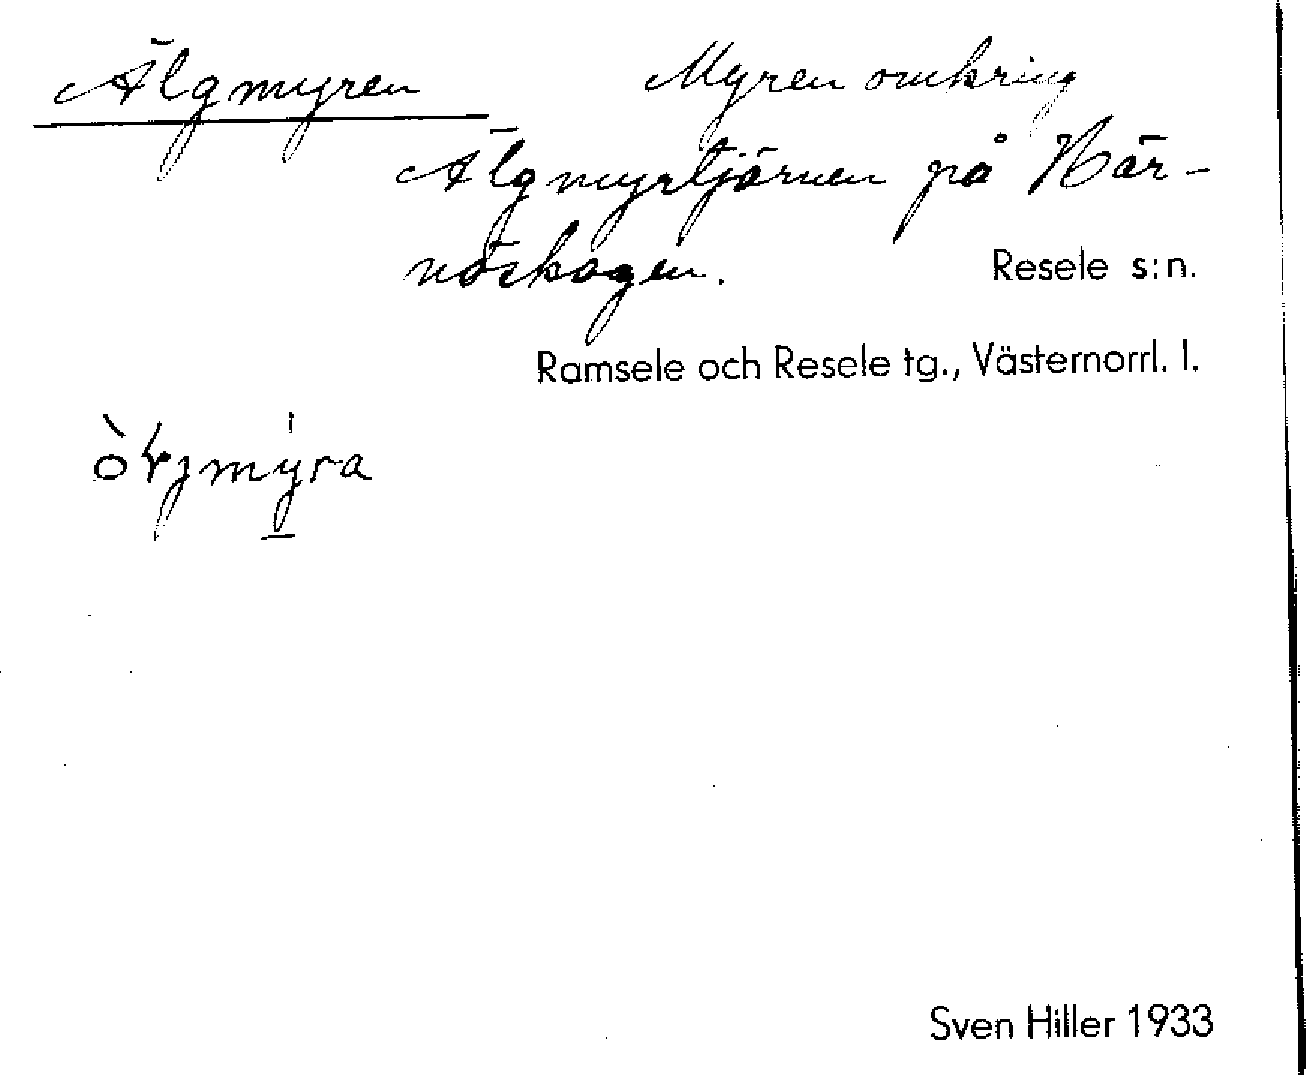 Älgmyren Myren omkring
Älgmyrtjärnen på Här-
nöskogen.
Resele s:n.
Ramsele och Resele tg., Västernorrl. l.
Sven Hiller 1933